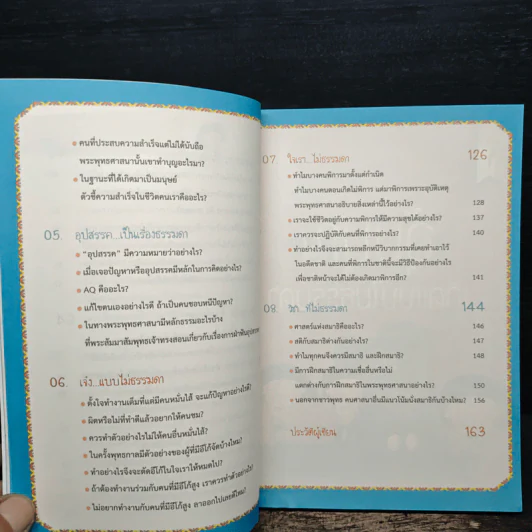 คนที่ประสบความสำเร็จแต่ไม่ได้นับถือ
พระพุทธศาสนานั้นเขาทำบุญอะไรมา?
ในฐานะที่ได้เกิดมาเป็นมนุษย์
ตัวชี้ความสำเร็จในชีวิตคนเราคืออะไร?
05. อุปสรรค...เป็นเรื่องธรรมดา
"อุปสรรค" มีความหมายว่าอย่างไร?
เมื่อเจอปัญหาหรืออุปสรรคมีหลักในการคิดอย่างไร?
AQ คืออะไร?
แก้ไขตนเองอย่างไรดี ถ้าเป็นคนชอบหนีปัญหา?
ในทางพระพุทธศาสนามีหลักธรรมอะไรบ้าง
ที่พระสัมมาสัมพุทธเจ้าทรงสอนเกี่ยวกับเรื่องการฝ่าฟันอุปสรรค
06. เจ๋ง...แบบไม่ธรรมดา
ตั้งใจทำงานเต็มที่แต่มีคนหมั่นไส้ จะแก้ปัญหาอย่างไรดี?
ผิดหรือไม่ที่ทำดีแล้วอยากให้คนชม?
ควรทำตัวอย่างไรไม่ให้คนอื่นหมั่นไส้?
ในครั้งพุทธกาลมีตัวอย่างของผู้ที่มีอีโก้จัดบ้างไหม?
ทำอย่างไรจึงจะตัดอีโก้ในใจเราให้หมดไป?
ถ้าต้องทำงานร่วมกับคนที่มีอีโก้สูง เราควรทำตัวอย่างไร?
ไม่อยากทำงานกับคนที่มีอีโก้สูง ลาออกไปเลยดีไหม?
07. ใจเรา...ไม่ธรรมดา 126
ทำไมบางคนพิการมาตั้งแต่กำเนิด
ทำไมบางคนตอนเกิดไม่พิการ แต่มาพิการเพราะอุบัติเหตุ
พระพุทธศาสนาอธิบายสิ่งเหล่านี้ไว้อย่างไร? 128
เราจะใช้ชีวิตอยู่กับความพิการให้มีความสุขได้อย่างไร? 137
เราควรจะปฏิบัติกับคนที่พิการอย่างไร? 140
ทำอย่างไรจึงจะสามารถหลีกหนีวิบากกรรมที่เคยทำเอาไว้
ในอดีตชาติ และคนที่พิการในชาตินี้จะมีวิธีป้องกันอย่างไร
เพื่อชาติหน้าจะได้ไม่ต้องเกิดมาพิการอีก? 141
08. ที่ไม่ธรรมดา 144
ศาสตร์แห่งสมาธิคืออะไร? 146
สติกับสมาธิต่างกันอย่างไร? 147
ทำไมทุกคนจึงควรมีสมาธิ และฝึกสมาธิ? 148
มีการฝึกสมาธิในความเชื่ออื่นหรือไม่
แตกต่างกับการฝึกสมาธิในพระพุทธศาสนาอย่างไร? 150
นอกจากชาวพุทธ คนศาสนาอื่นมีแนวโน้มนั่งสมาธิกันบ้างไหม? 156
ประวัติผู้เขียน 163